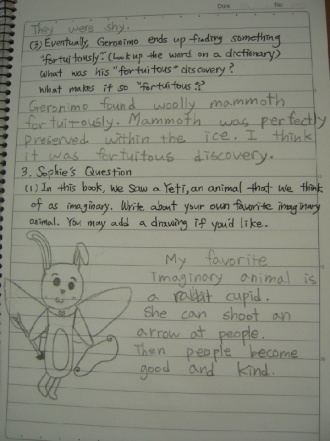 Date
They were shy.
(3) Eventually, Geronimo ends up finding something
"fortuitously". (Look up the word on a dictionary)
What was his "fortuitous" discovery?
What makes it so "fortuitous"?
Geronimo found woolly mammoth
fortuitously. Mammoth was perfectly
preserved within the ice. I think
it was fortuitous discovery.
3. Sophie's Question
(1) In this book, we saw a Yeti, an animal that we think
of as imaginary. Write about your own favorite imaginary
animal. You may add a drawing if you'd like.
My favorite
imaginary animal is
a rabbit cupid.
She can shoot an
arrow at people.
Then people become
good and kind.